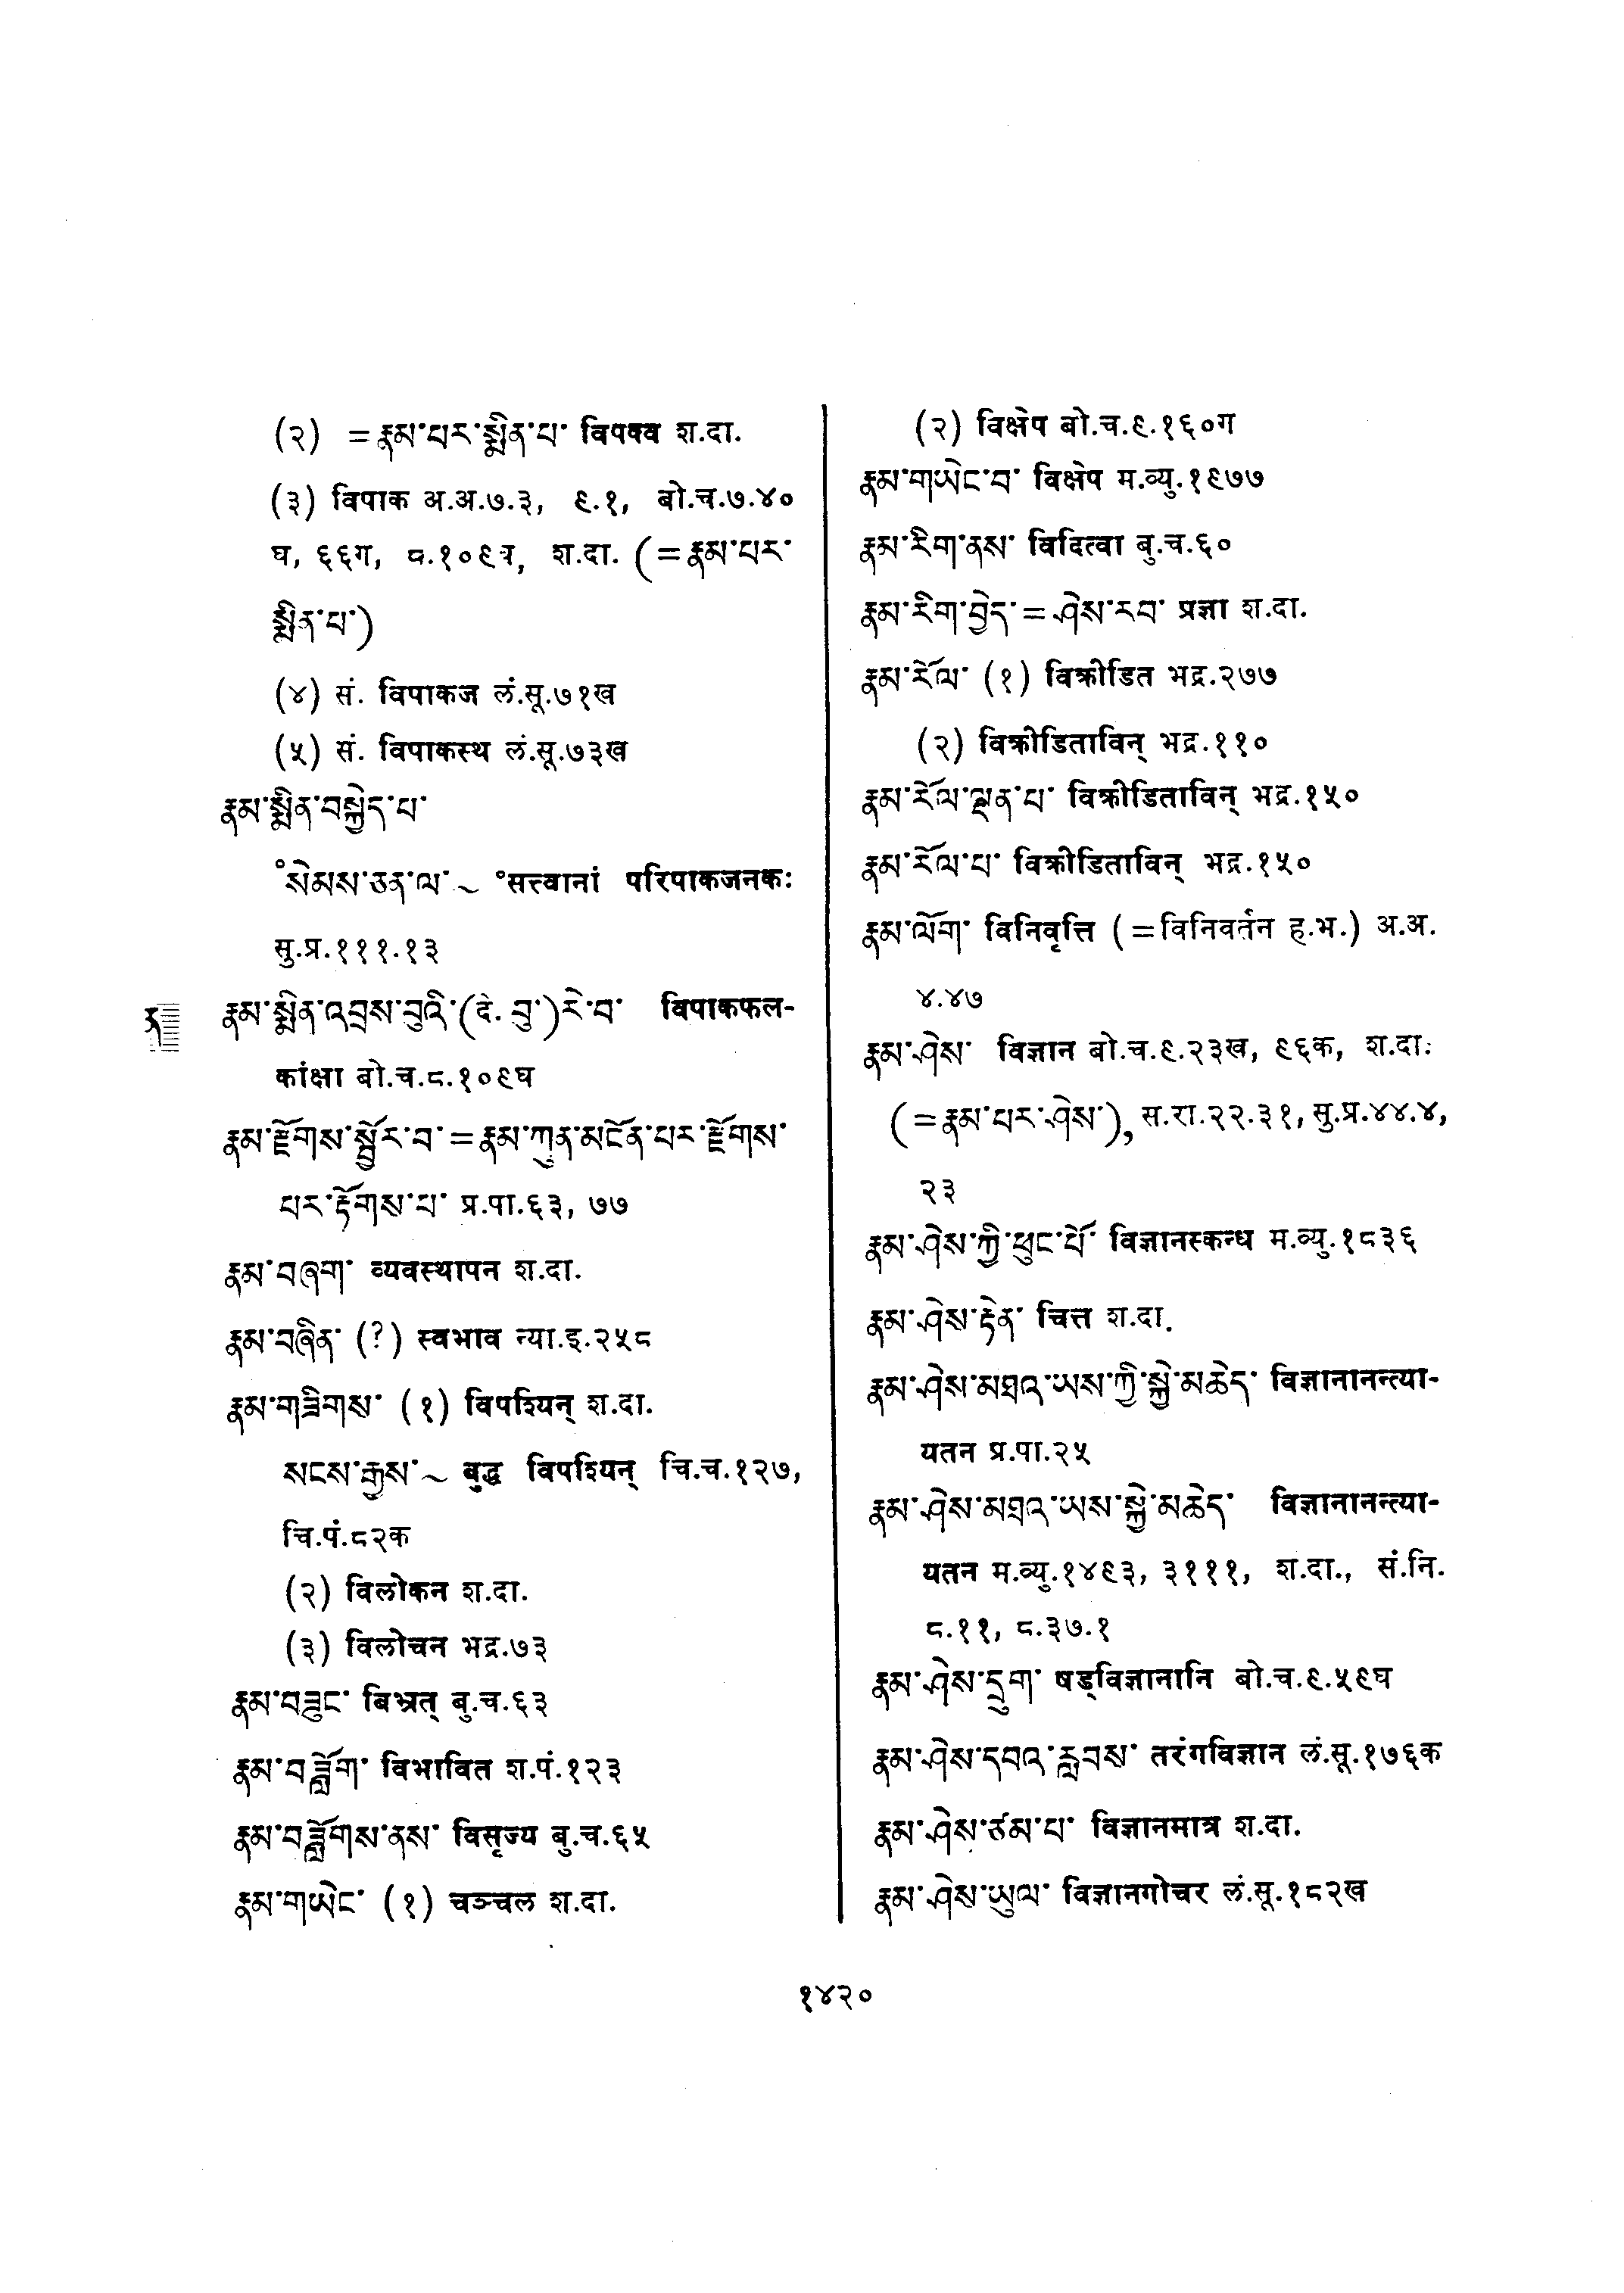 (२) =རྣམ་པར་སྨིན་པ་ विपक्व श.दा.
(३) विपाक अ.अ.७.३, ९.१, बो.च.७.४०
घ, ६६ग, ८.१०९घ, श.दा. (=རྣམ་པར་
སྨིན་པ་)
(४) सं. विपाकज लं.सू.७१ख
(५) सं. विपाकस्थ लं.सू.७३ख
རྣམ་སྨིན་བསྐྱེད་པ་
°སེམས་ཅན་ལ་~ °सत्त्वानां परिपाकजनकः
सु.प्र.१११.१३
རྣམ་སྨིན་འབྲས་བུའི་(दे. བུ་)རེ་བ་ विपाकफल-
कांक्षा बो.च.८.१०९घ
རྣམ་རྫོགས་སྦྱོར་བ་=རྣམ་ཀུན་མངོན་པར་རྫོགས་
པར་རྟོགས་པ་ प्र.पा.६३, ७७
རྣམ་བཞག་ व्यवस्थापन श.दा.
རྣམ་བཞིན་ (?) स्वभाव न्या.इ.२५८
རྣམ་གཟིགས་ (१) विपश्यिन् श.दा.
སངས་རྒྱས་~ बुद्ध विपश्यिन् चि.च.१२७,
चि.पं.८२क
(२) विलोकन श.दा.
(३) विलोचन भद्र.७३
རྣམ་བཟུང་ बिभ्रत् बु.च.६३
རྣམ་བཟློག་ विभावित श.पं.१२३
རྣམ་བཟློགས་ནས་ विसृज्य बु.च.६५
རྣམ་གཡེང་ (१) चञ्चल श.दा.
(२) विक्षेप बो.च.९.१६०ग
རྣམ་གཡེང་བ་ विक्षेप म.व्यु.१९७७
རྣམ་རིག་ནས་ विदित्वा बु.च.६०
རྣམ་རིག་བྱེད་=ཤེས་རབ་ प्रज्ञा श.दा.
རྣམ་རོལ་ (१) विक्रीडित भद्र.२७७
(२) विक्रीडिताविन् भद्र.११०
རྣམ་རོལ་ལྡན་པ་ विक्रीडिताविन् भद्र.१५०
རྣམ་རོལ་པ་ विक्रीडिताविन् भद्र.१५०
རྣམ་ལོག་ विनिवृत्ति (=विनिवर्तन ह.भ.) अ.अ.
४.४७
རྣམ་ཤེས་ विज्ञान बो.च.९.२३ख, ९६क, श.दा.
(=རྣམ་པར་ཤེས་), स.रा.२२.३१, सु.प्र.४४.४,
२३
རྣམ་ཤེས་ཀྱི་ཕུང་པོ་ विज्ञानस्कन्ध म.व्यु.१८३६
རྣམ་ཤེས་རྟེན་ चित्त श.दा.
རྣམ་ཤེས་མཐའ་ཡས་ཀྱི་སྐྱེ་མཆེད་ विज्ञानानन्त्या-
यतन प्र.पा.२५
རྣམ་ཤེས་མཐའ་ཡས་སྐྱེ་མཆེད་ विज्ञानानन्त्या-
यतन म.व्यु.१४९३, ३१११, श.दा., सं.नि.
८.११, ८.३७.१
རྣམ་ཤེས་དྲུག་ षड्विज्ञानानि बो.च.९.५९घ
རྣམ་ཤེས་དབའ་རླབས་ तरंगविज्ञान लं.सू.१७६क
རྣམ་ཤེས་ཙམ་པ་ विज्ञानमात्र श.दा.
རྣམ་ཤེས་ཡུལ་ विज्ञानगोचर लं.सू.१८२ख
१४२०